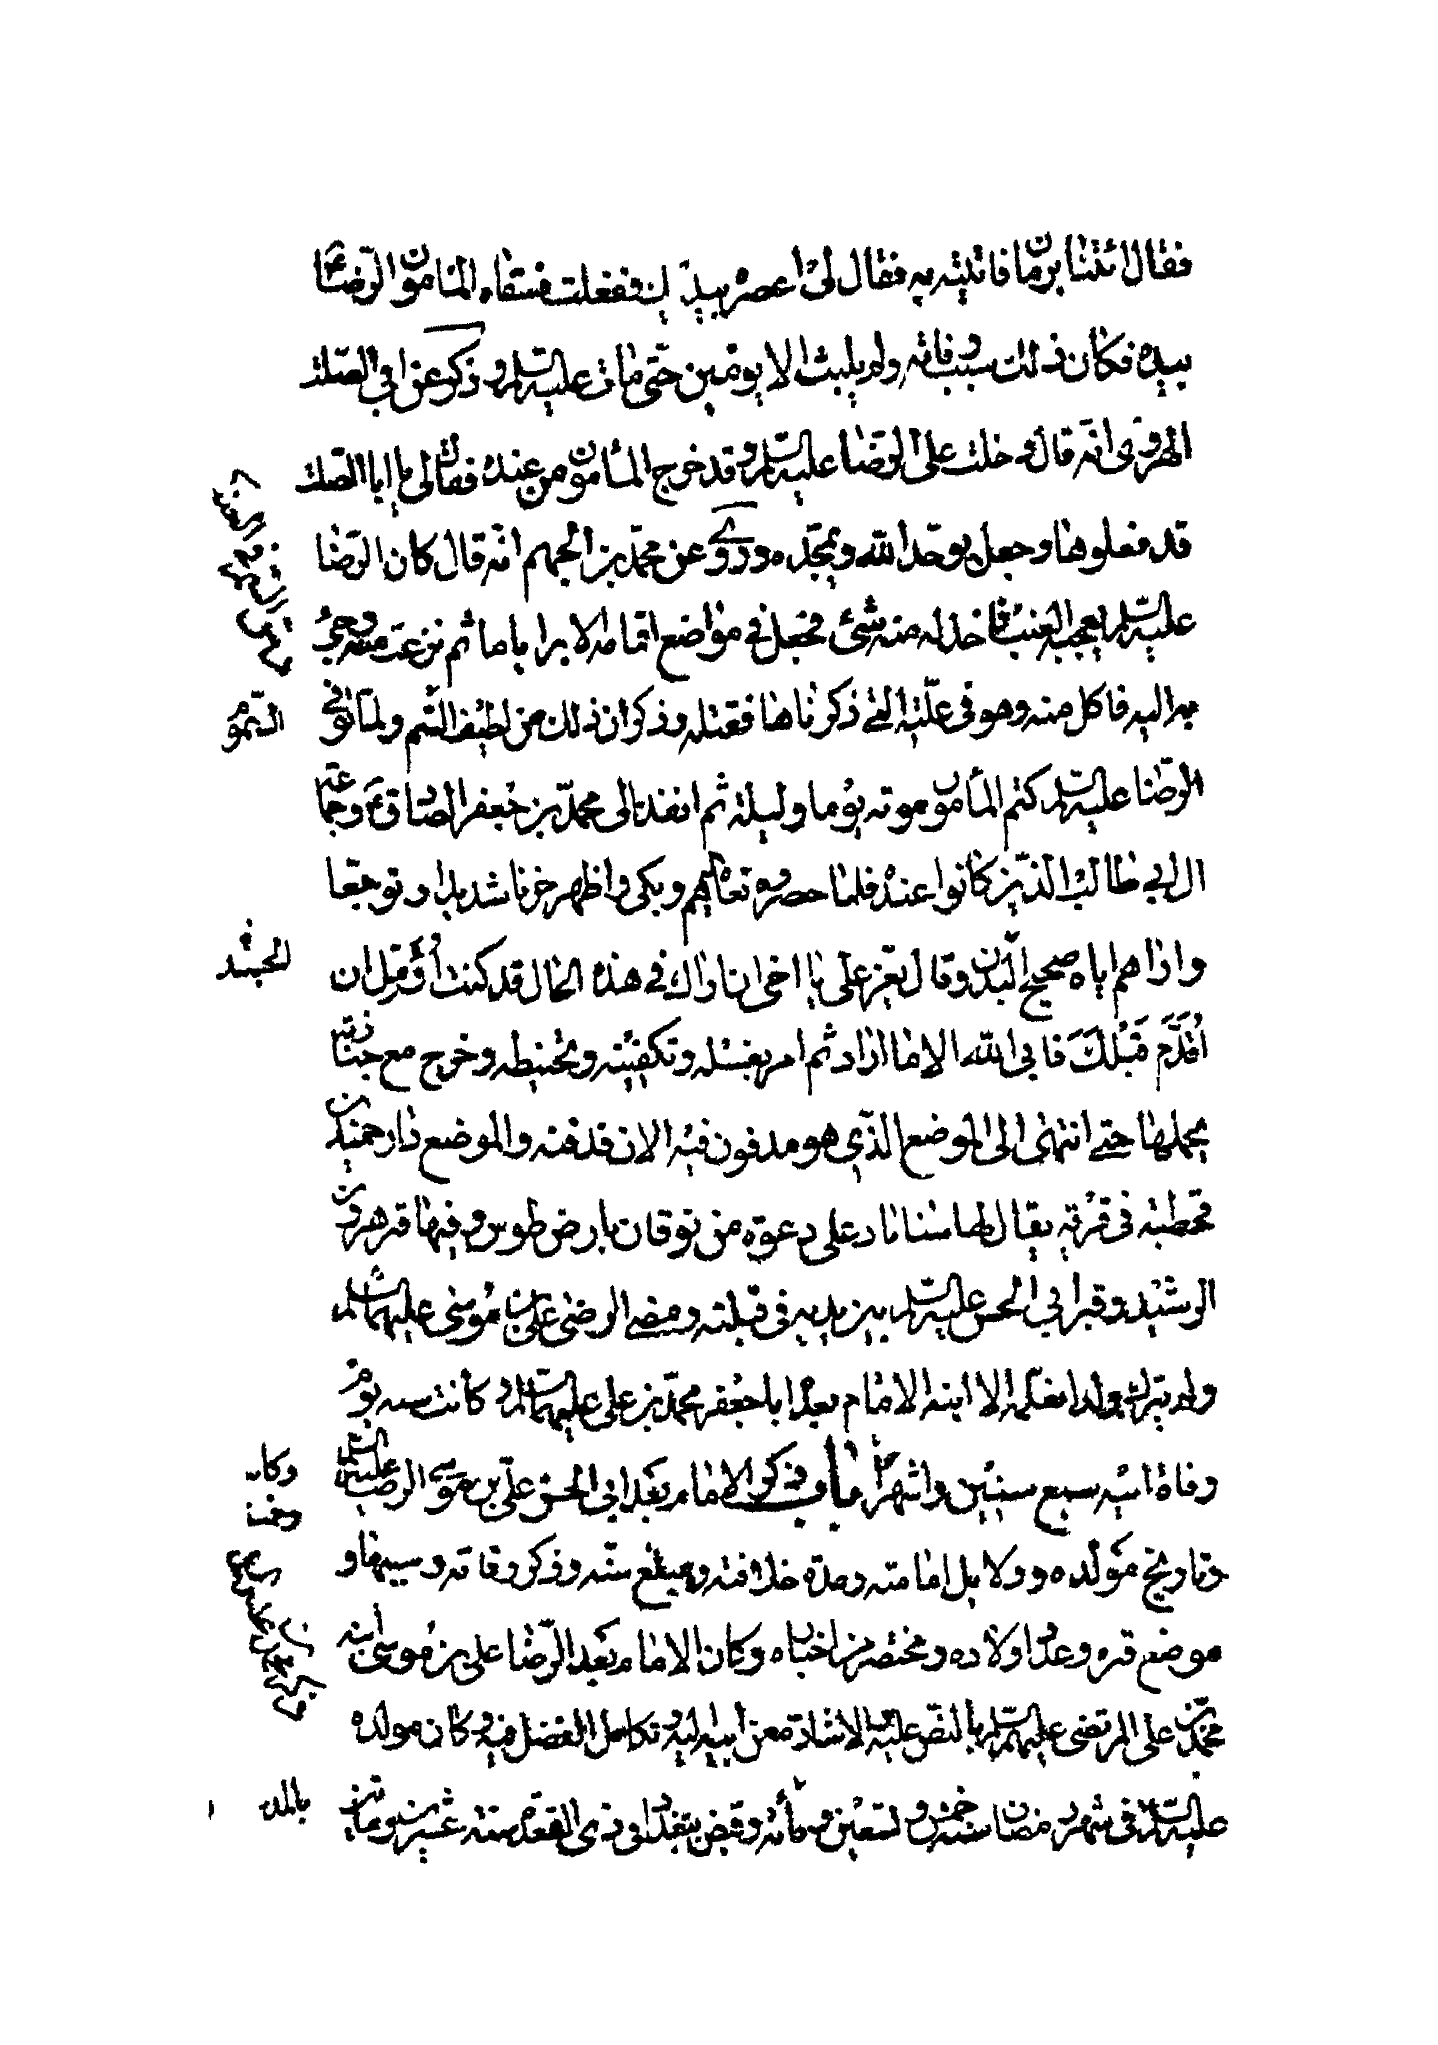 فقال ائتنا برمان فاتيته به فقال لى اعصره بيديك ففعلت فسقاه المامون الرضا ع
بيده فكان ذلك سبب وفاته ولم يلبث الا يومين حتى مات عليه السلم وذكر عن ابى الصلت
الهروى انه قال دخلت على الرضا عليه السلم وقد خرج المأمون من عنده فقال لى يا ابا الصلت
قد فعلوها وجعل يوحد الله ويمجده وروى عن محمد بن الجهم انه قال كان الرضا
عليه السلم يعجبه العنب فاخذ له منه شئ فجعل فى مواضع اقماعه الابر اياما ثم نزعت منه وجئ
به اليه فاكل منه وهو فى علته التى ذكرناها فقتله وذكر ان ذلك من لطيف السم ولما توفى
السموم
الرضا عليه السلم كتم المأمون موته يوما وليلة ثم انفذ الى محمد بن جعفر الصادق ع وجماعة
ال ابى طالب الذين كانوا عنده فلما حضروه نعاه اليهم وبكى واظهر حزنا شديدا وتوجعا
واراهم اياه صحيح البدن وقال يعز على يا اخى ان اراك فى هذه الحال قد كنت اؤمل ان
الجسد
اقدم قبلك فابى الله الا ما اراد ثم امر بغسله وتكفينه وتحنيطه وخرج مع جنازته
يحملها حتى انتهى الى الموضع الذى هو مدفون فيه الان فدفنه والموضع دار حميد بن
قحطبة فى قرية يقال لها سناباد على دعوة من نوقان بارض طوس وفيها قبر هرون
الرشيد وقبر ابى الحسن عليه السلم بين يديه فى قبلته ومضى الرضى على بن موسى عليهما السلم
ولم يترك ولدا نعلمه الا ابنه الامام بعده ابا جعفر محمد بن على عليهما السلم وكانت سنه يوم
وفاة ابيه سبع سنين واشهرا باب ذكر الامام بعد ابى الحسن على بن موسى الرضا عليهما السلم
وتاريخ مولده ودلايل امامته ومدة خلافته ومبلغ سنه وذكر وفاته وسببها و
موضع قبره وعدد اولاده ومختصر من اخباره وكان الامام بعد الرضا على بن موسى ابنه
محمد بن على المرتضى عليهم السلم بالنص عليه والاشارة من ابيه اليه وتكامل الفضل فيه وكان مولده
عليه السلم فى شهر رمضان سنة خمس وتسعين ومائة وقبض ببغداد فى ذى القعدة سنة عشرين ومائتين